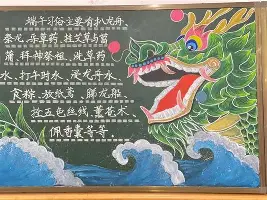 端午习俗主要有扒龙舟
祭龙、采草药、挂艾草与菖
蒲、拜神祭祖、洗草药
水、打午时水、浸龙舟水
食粽、放纸鸢、睇龙船、
拴五色丝线、薰苍术、
佩香囊等等。